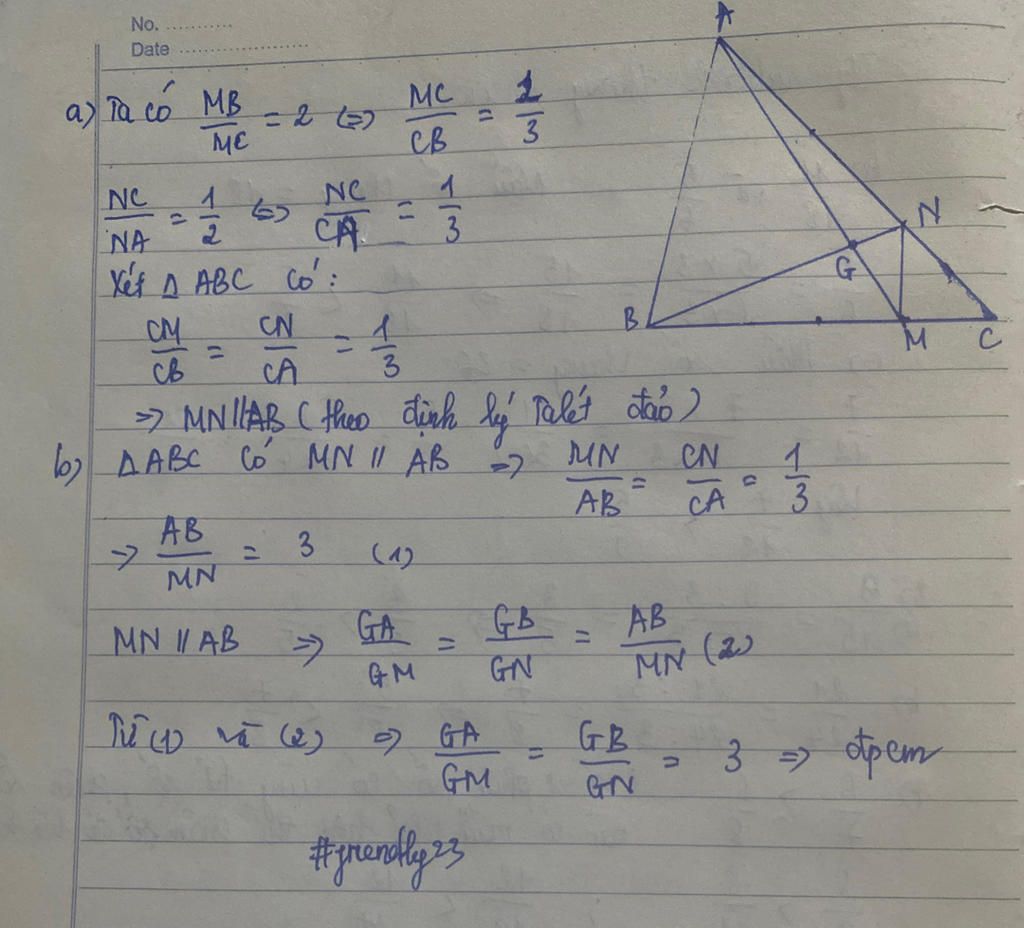 No. ...........
Date .....................
a) Ta có MB/MC = 2 <=> MC/CB = 1/3
NC/NA = 1/2 <=> NC/CA = 1/3
Xét Δ ABC có:
CM/CB = CN/CA = 1/3
=> MN//AB (theo định lý Talét đảo)
b) ΔABC có MN // AB => MN/AB = CN/CA = 1/3
=> AB/MN = 3 (1)
MN // AB => GA/GM = GB/GN = AB/MN (2)
Từ (1) và (2) => GA/GM = GB/GN = 3 => đpcm
A
N
G
B
M
C